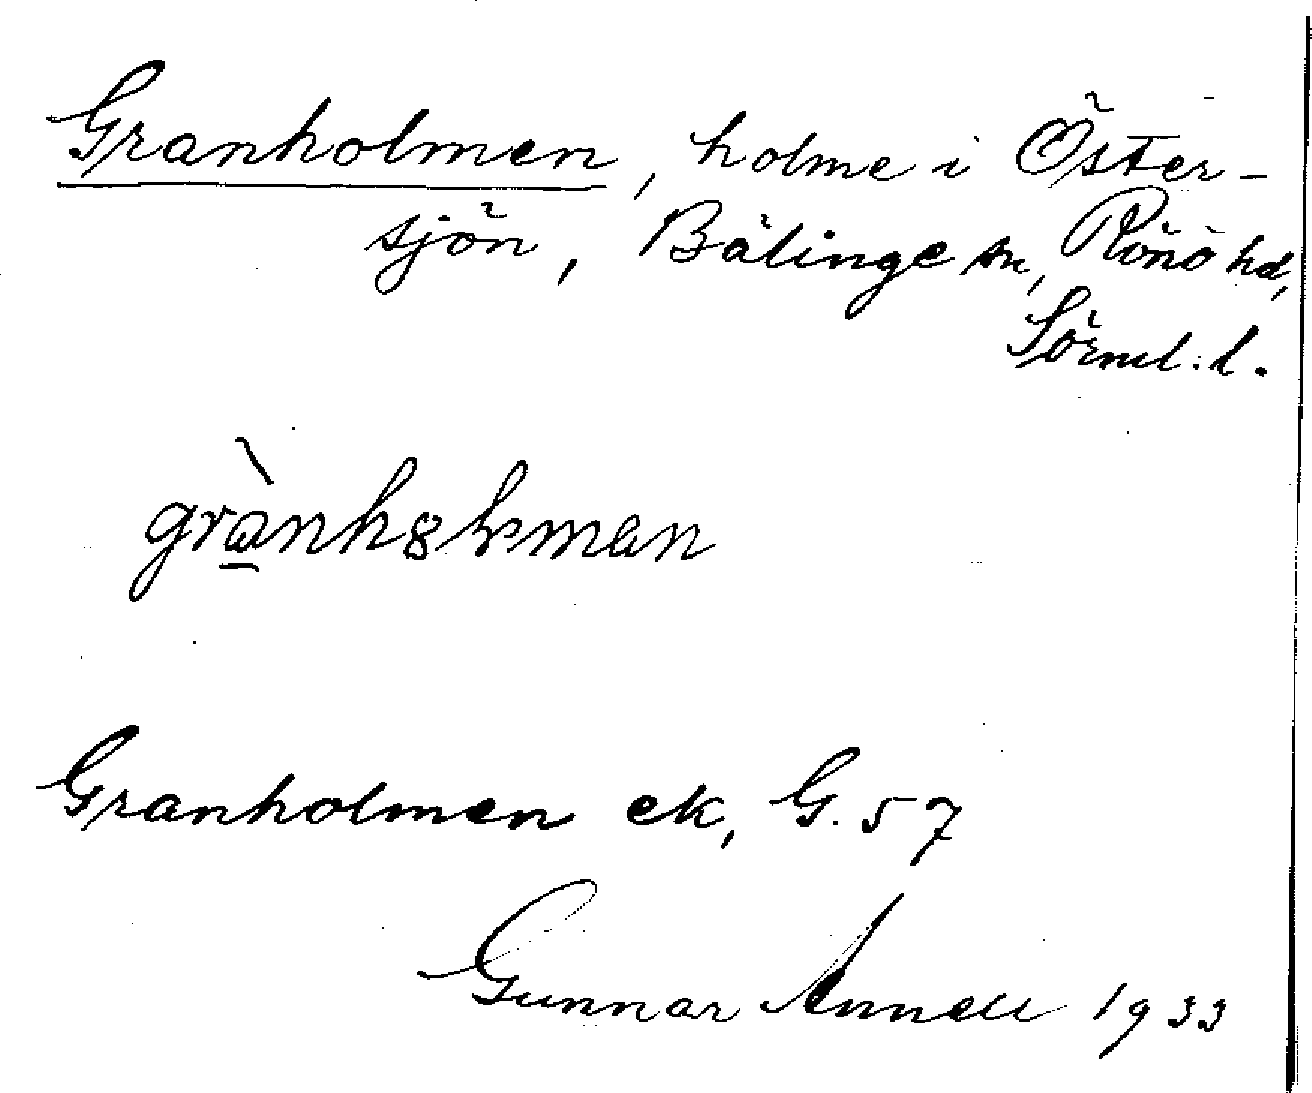 Granholmen, holme i Öster-
sjön, Bälinge sn, Rönö hd,
Sörml. l.
grànhålman
Granholmen ek, G. 57
Gunnar Annell 1933